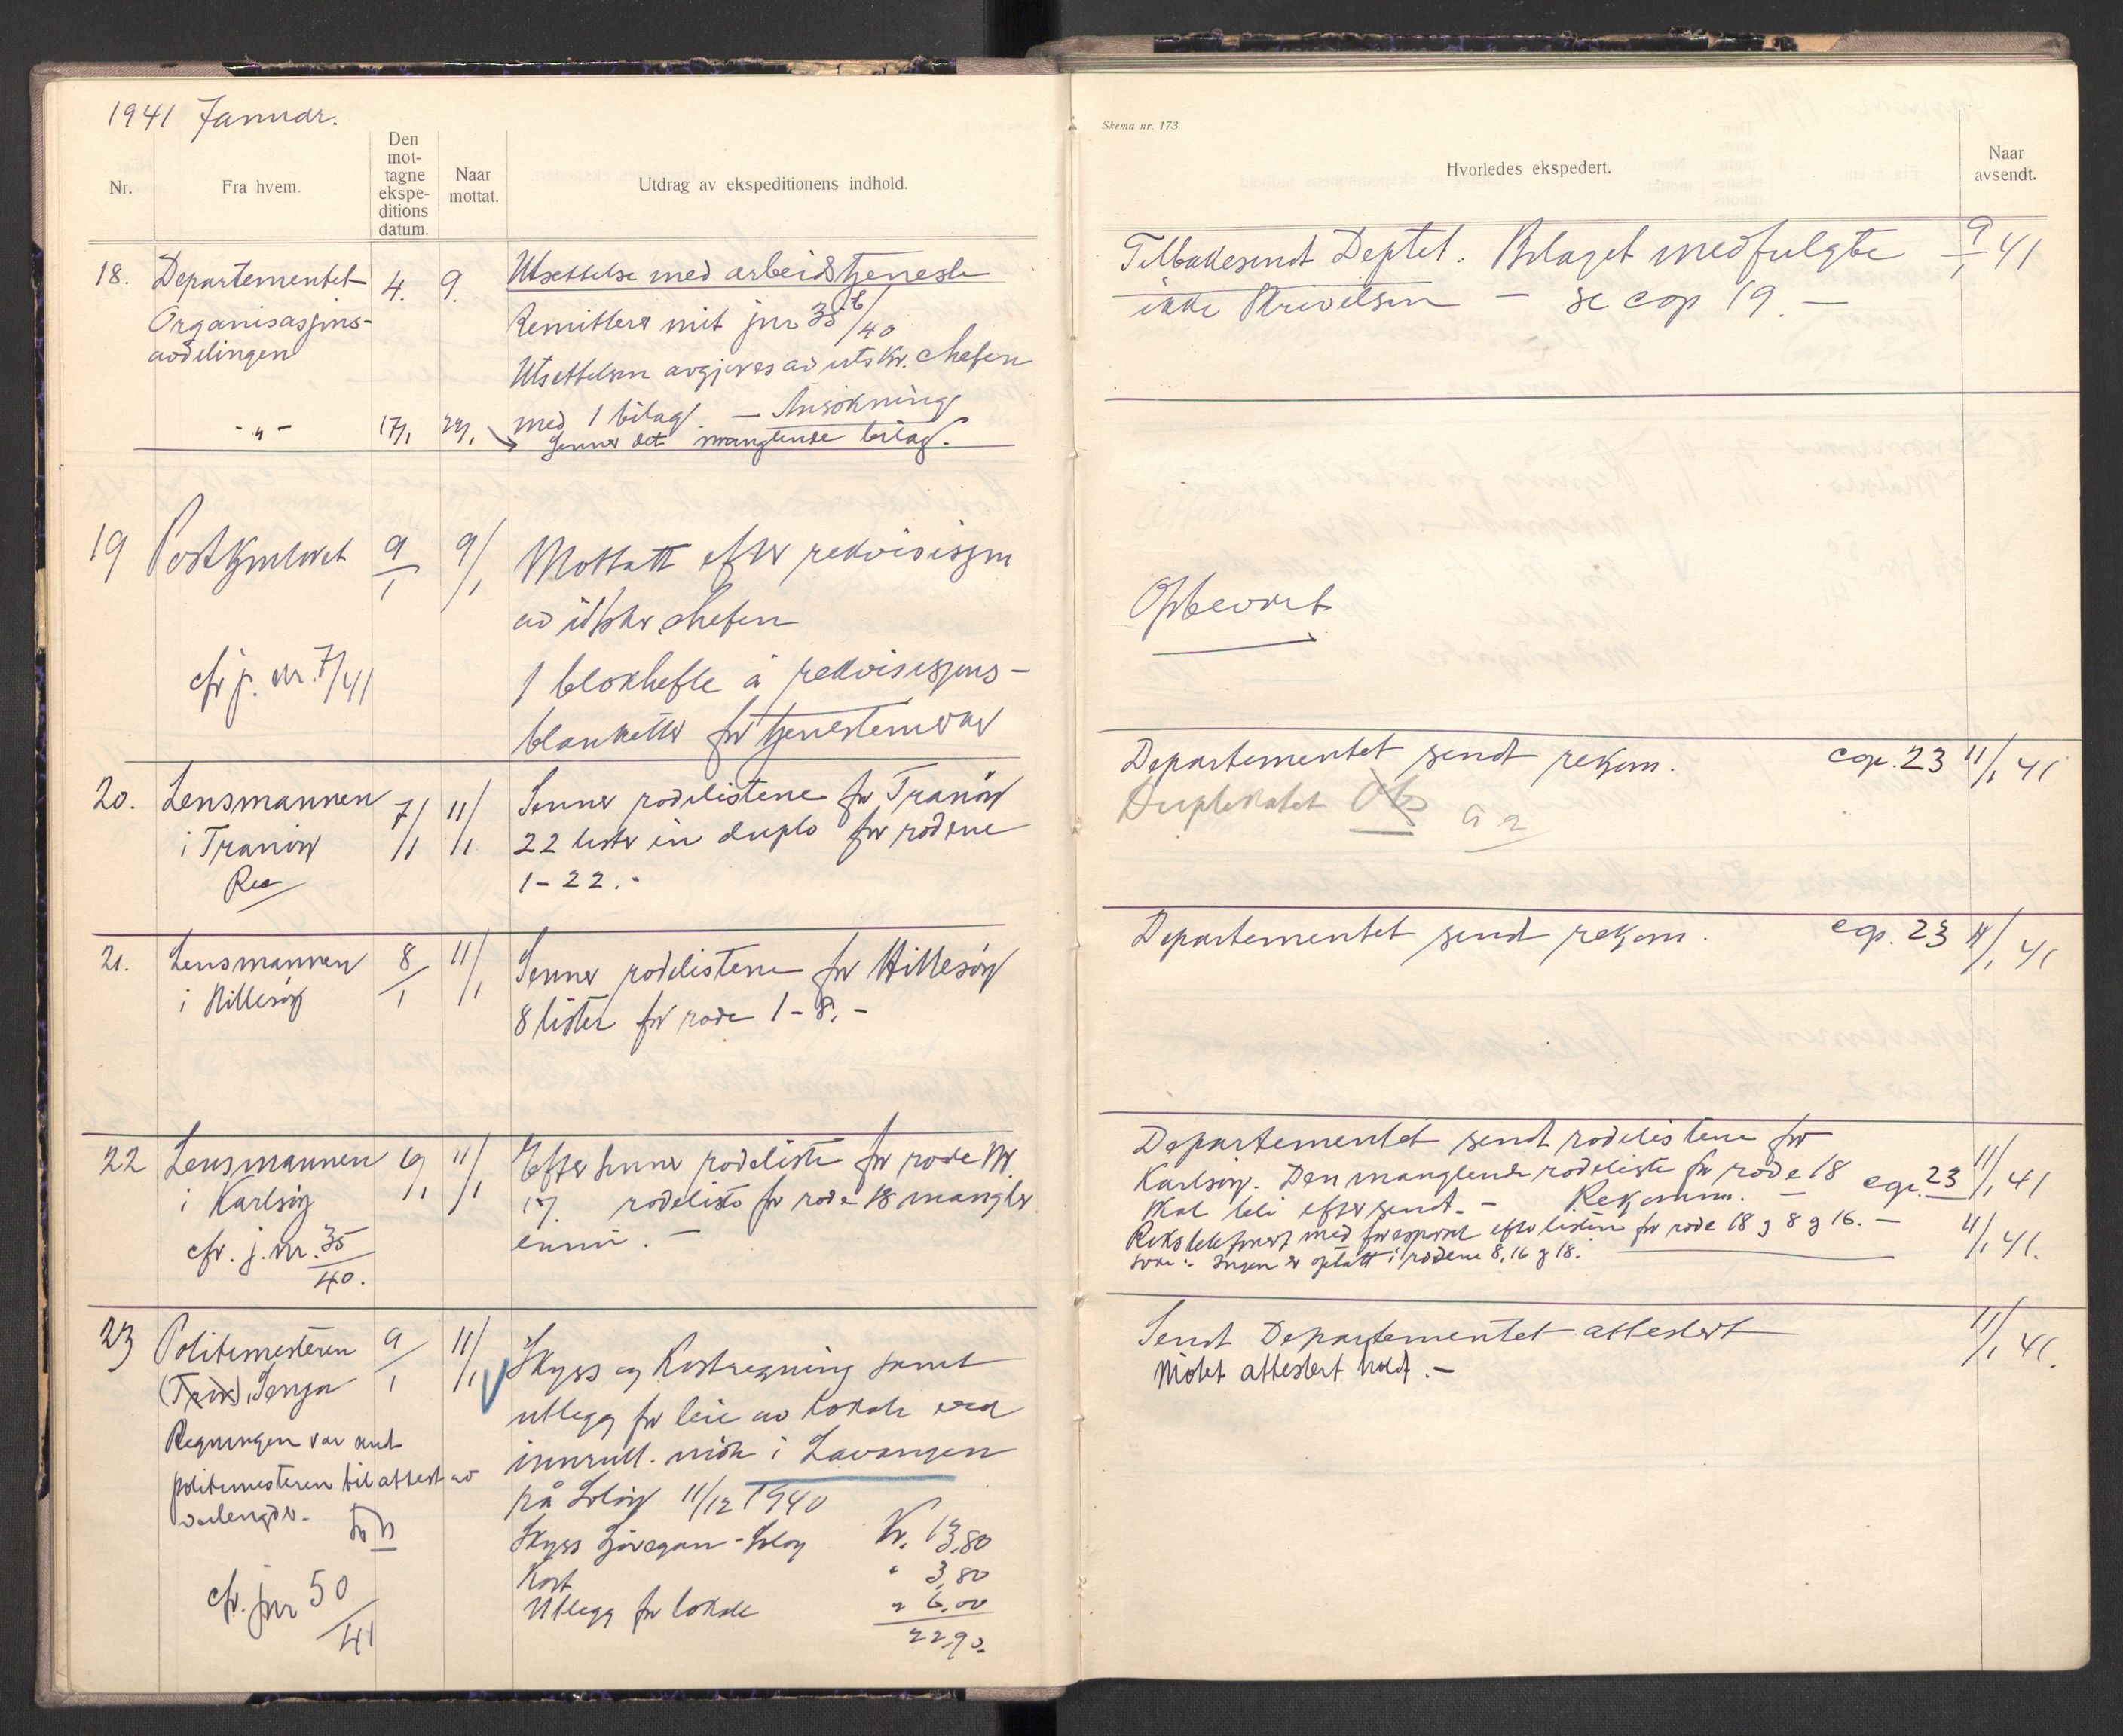 1941 Januar.
Nr.
Fra hvem.
Den
mot-
tagne
ekspe-
ditions
datum.
Naar
mottat.
Utdrag av ekspeditionens indhold.
18. Departementet 4. 9. Utsettelse med arbeidstjeneste
Organisasjons-
avdelingen
Remitterer mit jnr 35 /40
Utsettelsen avgjøres av utskr. chefen
med 1 bilag — Ansökning
-"- 17/1 24/1 Senner det manglende bilag.
19 Postkontoret 9/1 9/1 Mottatt efter rekvisisjon
av utskr. chefen
cfr j. nr. 7/41
1 blokhefte à rekvisisjons-
blanketter for tjenestemerker
20. Lensmannen 7/1 11/1 Senner rodelistene for Tranöy
i Tranöy 22 lister in duplo for rodene
Rec 1-22.-
21. Lensmannen 8/1 11/1 Senner rodelistene for Hillesöy
i Hillesöy 8 lister for rode 1-8.-
22 Lensmannen 9/1 11/1 Eftersenner rodeliste for rode Nr.
i Karlsöy 17. rodeliste for rode 18 mangler
cfr. j. nr. 35/40. ennu. -
23 Politimesteren 9/1 11/1 Skyss og Kostregning samt
Senja utlegg for leie av lokale ved
Regningen var sendt innrull. möte i Lavangen
politimesteren til attest av på Soløy 11/12 1940
veilengde.
Skyss Sjövegan - Soløy Kr. 13,80
Kost " 3,80
cfr. jnr 50/41
Utlegg for lokale " 6,00
22,90
Skema nr. 173.
Hvorledes ekspedert.
Naar
avsendt.
Tilbakesendt Deptet. Bilaget medfulgte 9/1 41
ikke skrivelsen — se cop 19. —
Opbevaret
Departementet sendt rekom. cop. 23 11/1 41
Duplikatet
Departementet sendt rekom. cop. 23 11/1 41
Departementet sendt rodelistene for
Karlsöy. Den manglende rodeliste for rode 18 cop. 23 11/1 41
skal bli eftersendt. - Rekomm. —
Rikstelefonert med forespørsel efter listene for rode 18 og 8 og 16. — 11/1 41.
Svar: Ingen er optatt i rodene 8, 16 og 18.
Sendt Departementet attestert 11/1 41.
Mötet attestert holdt. -